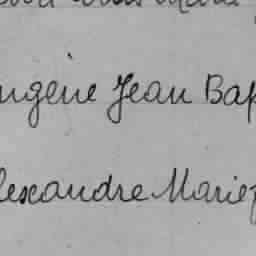 ugène Jean Bap
lexandre Marie